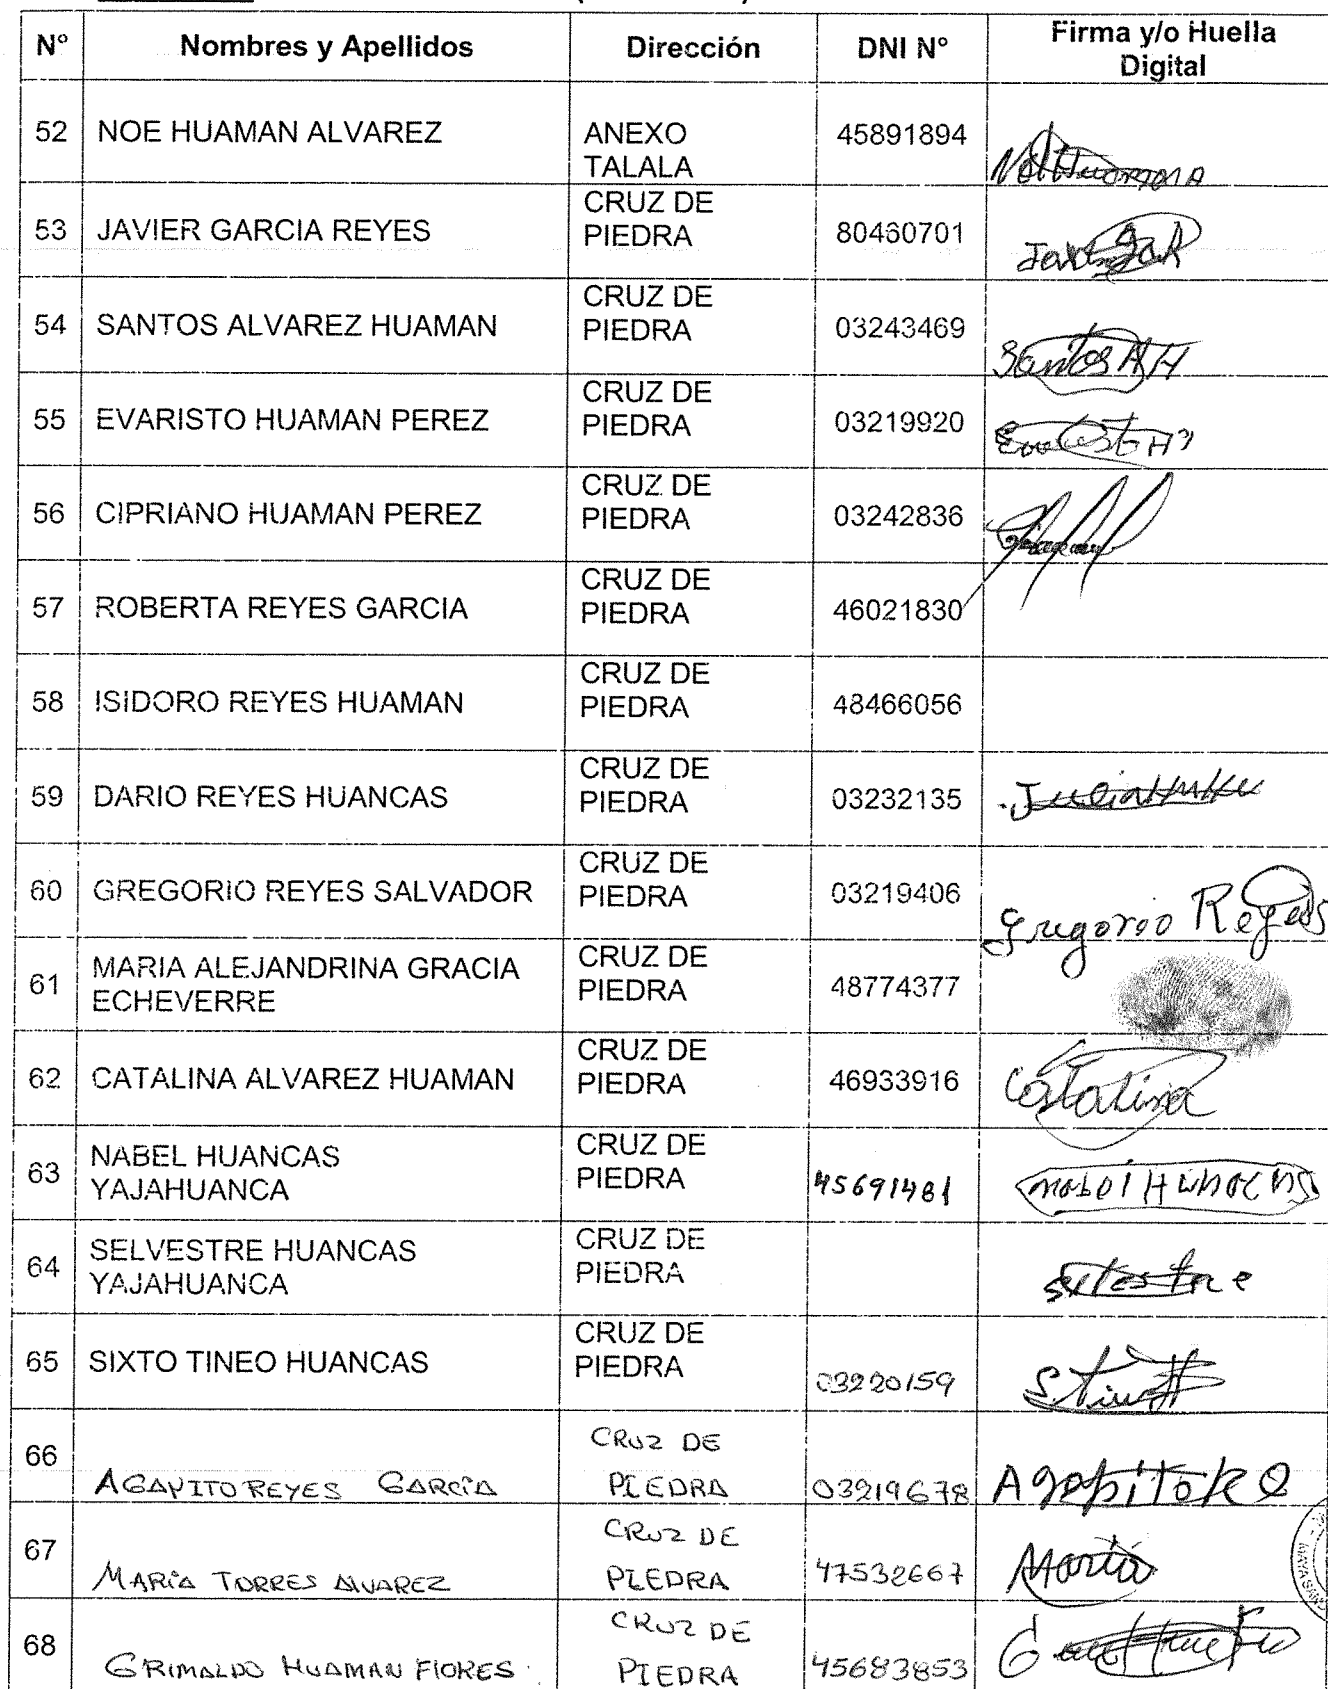 Nº Nombres y Apellidos Dirección DNI Nº Firma y/o Huella
Digital
52 NOE HUAMAN ALVAREZ ANEXO
TALALA 45891894
53 JAVIER GARCIA REYES CRUZ DE
PIEDRA 80460701
54 SANTOS ALVAREZ HUAMAN CRUZ DE
PIEDRA 03243469 Santos AH
55 EVARISTO HUAMAN PEREZ CRUZ DE
PIEDRA 03219920
56 CIPRIANO HUAMAN PEREZ CRUZ DE
PIEDRA 03242836
57 ROBERTA REYES GARCIA CRUZ DE
PIEDRA 46021830
58 ISIDORO REYES HUAMAN CRUZ DE
PIEDRA 48466056
59 DARIO REYES HUANCAS CRUZ DE
PIEDRA 03232135
60 GREGORIO REYES SALVADOR CRUZ DE
PIEDRA 03219406 Gregorio Reyes
61 MARIA ALEJANDRINA GRACIA
ECHEVERRE CRUZ DE
PIEDRA 48774377
62 CATALINA ALVAREZ HUAMAN CRUZ DE
PIEDRA 46933916 Catalina
63 NABEL HUANCAS
YAJAHUANCA CRUZ DE
PIEDRA 45691481
64 SELVESTRE HUANCAS
YAJAHUANCA CRUZ DE
PIEDRA silestre
65 SIXTO TINEO HUANCAS CRUZ DE
PIEDRA 03220159
66 AGAPITO REYES GARCÍA CRUZ DE
PIEDRA 03219678 Agapito R G
67 MARÍA TORRES ALVAREZ CRUZ DE
PIEDRA 47532667 María
68 GRIMALDO HUAMAN FLORES CRUZ DE
PIEDRA 45683853